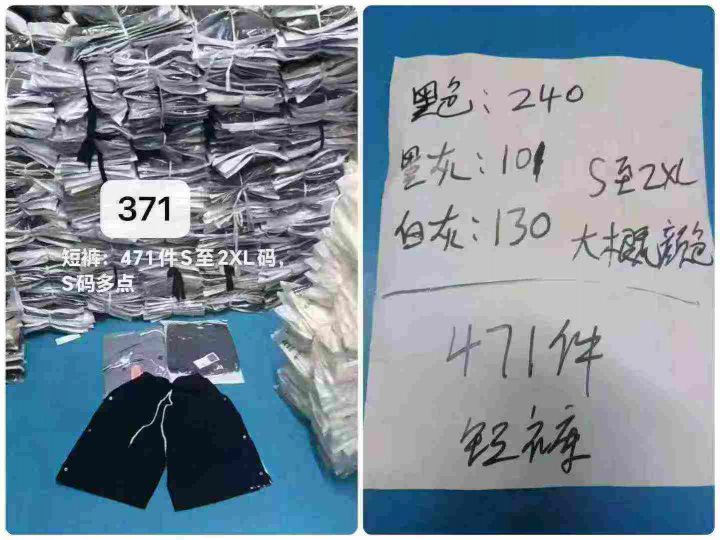 371
短裤：471件S至2XL码，
S码多点
黑色：240
黑灰：101
白灰：130
S至2XL
大概颜色
471件
短裤